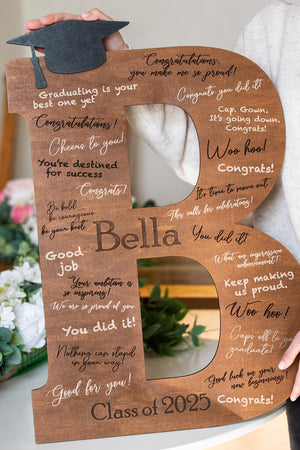 Congratulations,
you make me so proud!
Graduating is your
best one yet
Congrats you did it!
Congratulations!
Cap. Gown.
It's going down.
Congrats!
Cheers to you!
Woo hoo!
You're destined
for success
Congrats!
Congrats!
It's time to move out
Be bold,
be courageous
be your best
This calls for celebrating!
Bella
You did it!
Good
job
What an impressive
achievement!
Your ambition is
so inspiring!
Keep making
us proud.
We are so proud of you
Woo hoo!
You did it!
Caps off to you
graduate!
Nothing can stand
in your way!
Good luck on your
new beginnings!
Good for you!
Congrats!
Class of 2025